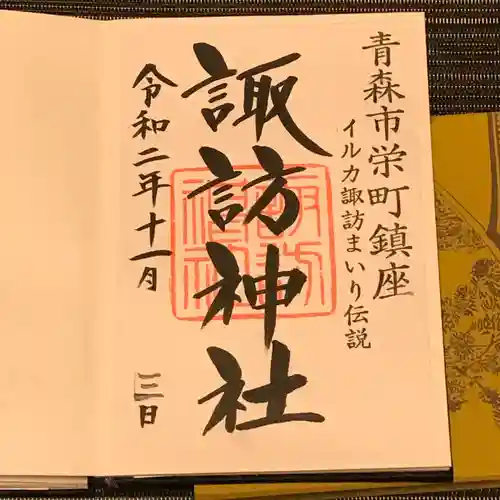 青森市栄町鎮座
イルカ諏訪まいり伝説
諏訪神社
令和二年十一月三日